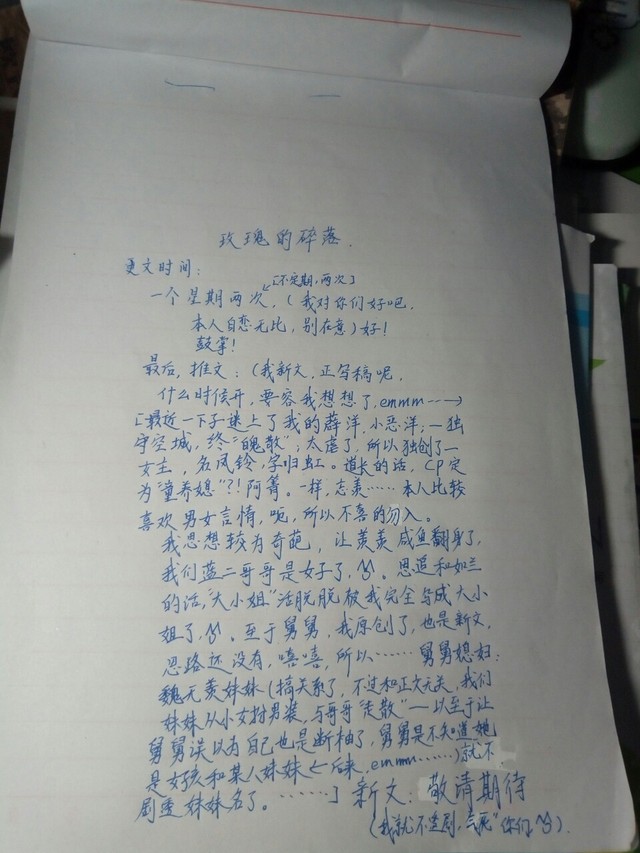 玫瑰的碎落.
更文时间:
[不定期,两次]
一个星期两次,(我对你们好吧,
本人自恋无比,别在意)好!
鼓掌!
最后,推文:(我新文,正写稿呢,
什么时候开,要容我想想了,emmm…→
[最近一下子迷上了我的薛洋,小恶洋;一独
守空城,终"魄散";太虐了,所以独创了一
女主,名风铃,字归虹。道长的话,CP定
为"童养媳"?!阿箐。一样,忘羡……本人比较
喜欢男女言情,呃,所以不喜的勿入。
我思想较为奇葩,让羡羡咸鱼翻身了,
我们蓝二哥哥是女子了,。思追和如兰
的话,"大小姐"活脱脱被我完全写成大小
姐了,、至于舅舅,我原创了,也是新文,
思路还没有,嘻嘻,所以……舅舅媳妇:
魏无羡妹妹(搞关系了,不过和正文无关,我们
妹妹从小女扮男装,与哥哥"走散"—以至于让
舅舅误以为自己也是断袖了,舅舅是不知道她
是女孩和某人妹妹←后来,emmm……)就不
剧透妹妹名了。……]新文:敬请期待
(我就不透剧,气死"你们).